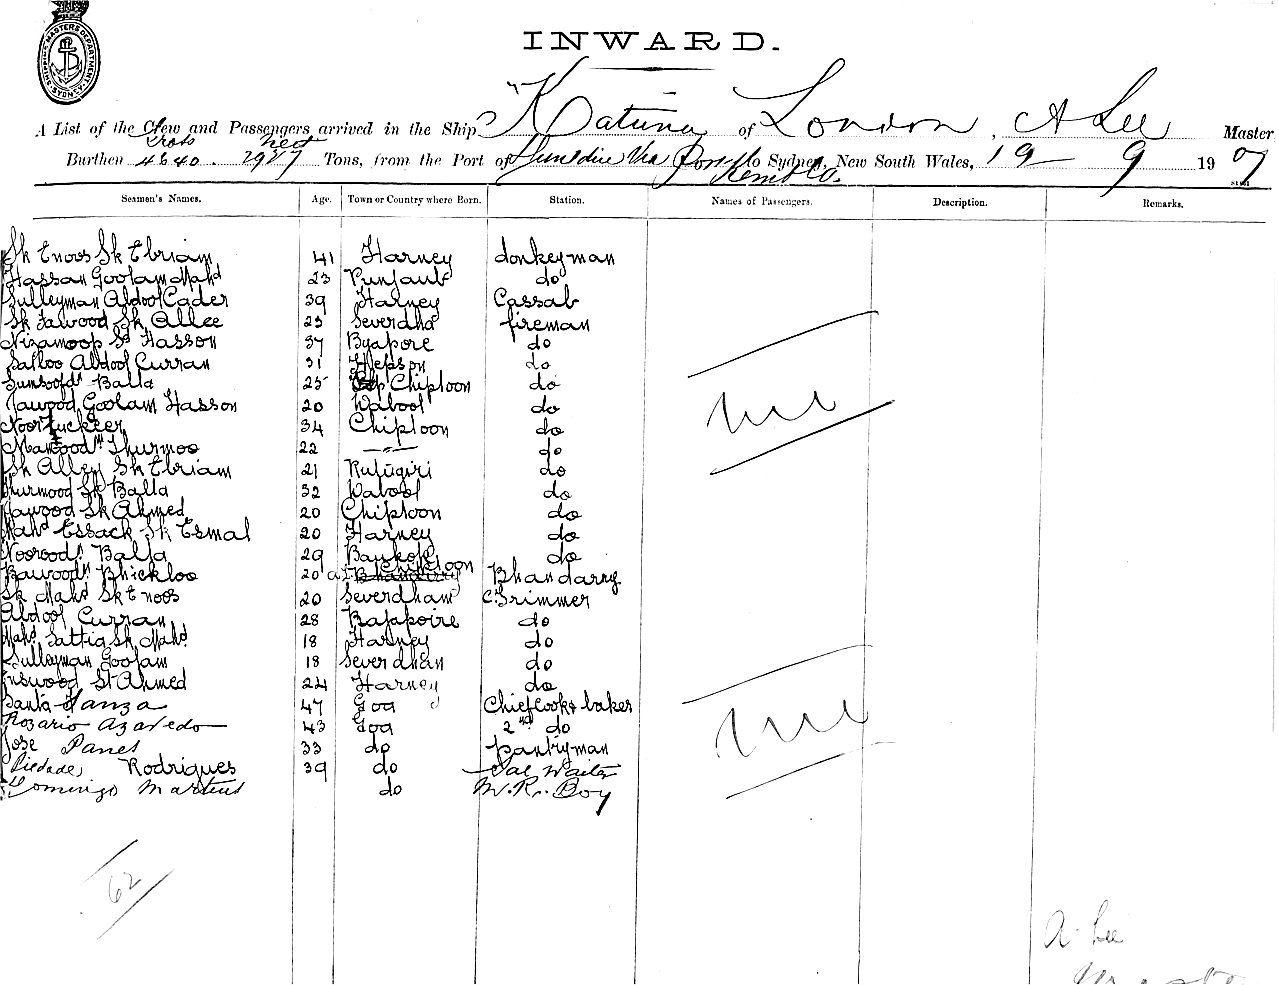 SHIPPING MASTERS DEPARTMENT SYDNEY
INWARD.
A List of the Crew and Passengers arrived in the Ship "Katuna of London, A Lee Master
Gross Nett
Burthen 4640. 2927 Tons, from the Port of Dunedin Via Port Kembla to Sydney, New South Wales, 19 9 1907
Seamen's Names. Age. Town or Country where Born. Station. Names of Passengers. Description. Remarks.
Sk Enoos Sk Ebriam 41 Harney donkeyman
Hassan Goolam Mahd 23 Punjaub do
Sulleyman Abdool Cader 39 Harney Cassab
Sk Dawood Sk Allee 25 Severdha fireman
Nizamoop Sk Hasson 37 Byapore do
Salloo Abdool Curran 31 do
Balla 25 Chiploon do
Dawood Goolam Hasson 20 Wabool do
Noor Fuckeer 34 Chiploon do
Thurmoo 22 —"— do
Sk Alley Sk Ebriam 21 Rutugiri do
Sk Balla 32 Wabool do
Dawood Sk Ahmed 20 Chiploon do
Mahd Essack Sk Esmal 20 Harney do
Balla 29 Bankok do
Bhickloo 20 at Chiploon Bhandarry
Sk Mahd Sk Enoos 20 Severdham Trimmer
Abdool Curran 28 Rappoire do
Mahd Sattig Sk Mahd 18 Harney do
Sulleyman Goolam 18 Severdhan do
Sk Ahmed 24 Harney do
Santa Vanza 47 Goa Chief cook & baker
Rozario Azavedo 43 Goa 2nd do
Jose Panes 33 do pantryman
Piedade Rodrigues 39 do Sal Waiter
Domingo Martins do M.R. Boy
nil
nil
62
A. Lee
Master